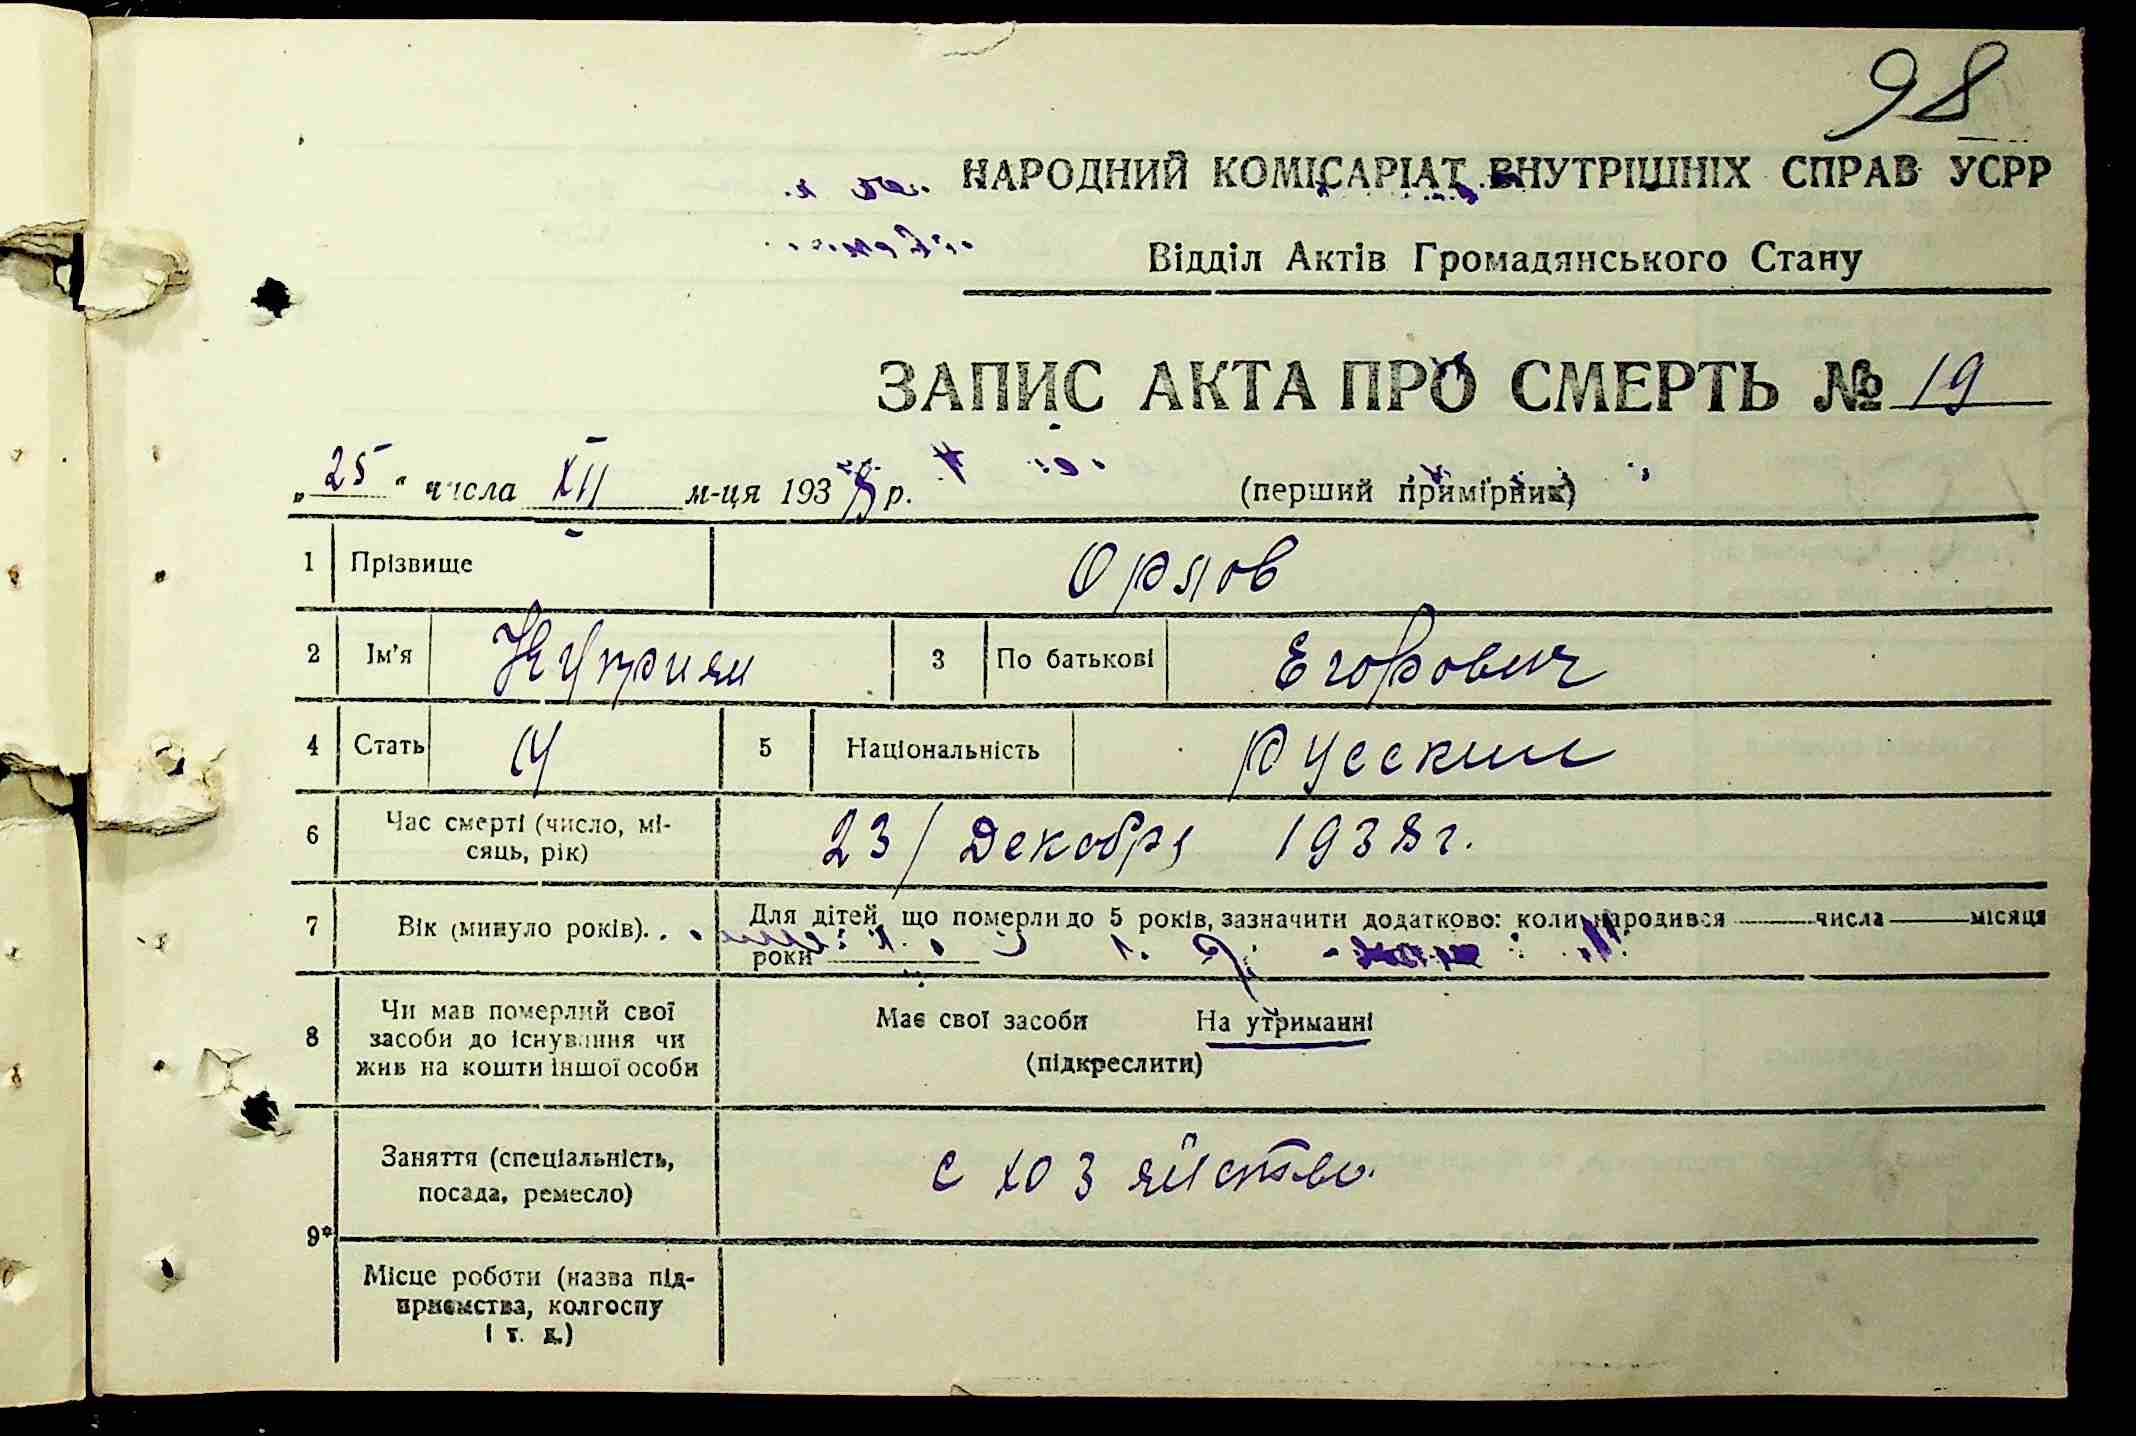 98
НАРОДНИЙ КОМІСАРІАТ ВНУТРІШНІХ СПРАВ УСРР
Відділ Актів Громадянського Стану
ЗАПИС АКТА ПРО СМЕРТЬ № 19
„25“ числа XII м-ця 1938 р. (перший примірник)
1 Прізвище Орлов
2 Ім'я Куприян 3 По батькові Егорович
4 Стать Ч 5 Національність русский
6 Час смерті (число, мі-
сяць, рік) 23/ Декабря 1938 г.
7 Вік (минуло років). . Для дітей, що померли до 5 років, зазначити додатково: коли народився числа місяця
роки
8 Чи мав померлий свої
засоби до існування чи
жив на кошти іншої особи
Має свої засоби На утриманні
(підкреслити)
9*
Заняття (спеціальність,
посада, ремесло) с хозяйство.
Місце роботи (назва під-
приємства, колгоспу
і т. д.)